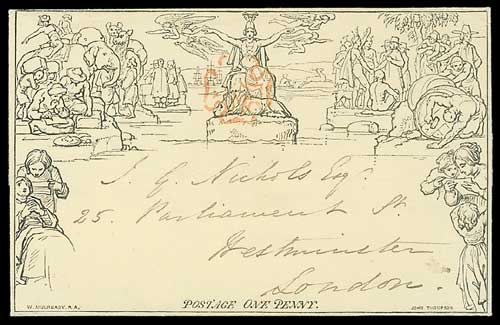 J. G. Nichols Esqr.
25. Parliament St.
Westminster
London.
POSTAGE ONE PENNY.
W. MULREADY. R.A.
JOHN THOMPSON